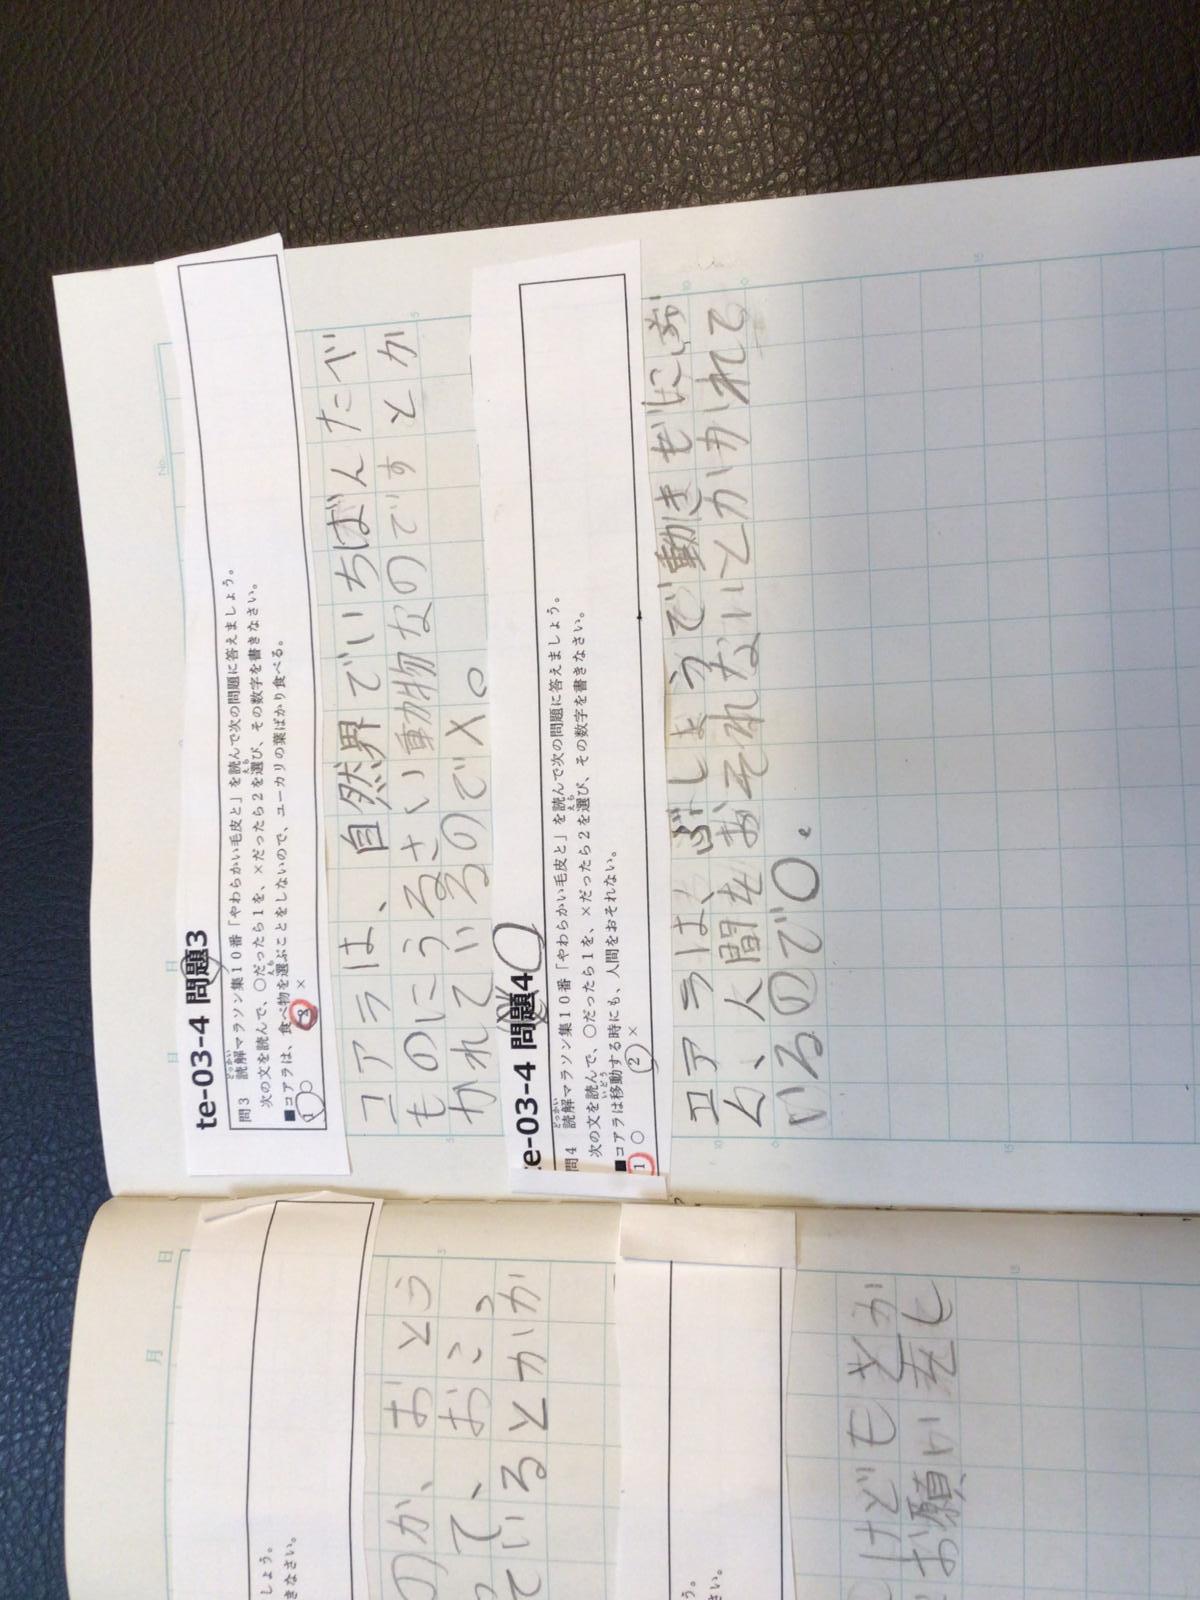 te-03-4 問題3
問3 読解マラソン集10番「やわらかい毛皮と」を読んで次の問題に答えましょう。
次の文を読んで、○だったら1を、×だったら2を選び、その数字を書きなさい。
■コアラは、食べ物を選ぶことをしないので、ユーカリの葉ばかり食べる。
○ ×
コアラは、自然界でいちばんたべ
ものにうるさい動物なのですとか
かれているのでX。
te-03-4 問題4
問4 読解マラソン集10番「やわらかい毛皮と」を読んで次の問題に答えましょう。
次の文を読んで、○だったら1を、×だったら2を選び、その数字を書きなさい。
■コアラは移動する時にも、人間をおそれない。
1 ○ 2 ×
コアラは、ぶしょうで動き
、人間をおそれないとかかれて
いるので○。
日
月
しょう。
きなさい。
のか、おとう
て、おこっ
ているとかか
けどもとか
お願いをし
う。
さい。